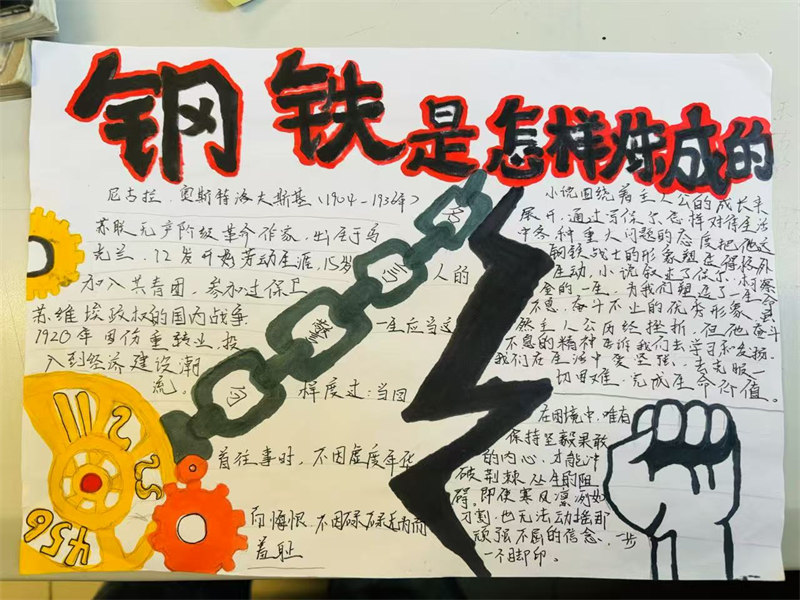 钢铁是怎样炼成的
尼古拉·奥斯特洛夫斯基（1904-1936年）
苏联无产阶级革命作家，出生于乌
克兰，12岁开始劳动生涯，15岁
加入共青团，参加过保卫
苏维埃政权的国内战争
1920年因伤重转业，投
入到经济建设潮
流。
名
言
警
句
人的
一生应当这
样度过：当回
首往事时，不因虚度年华
而悔恨，不因碌碌无为而
羞耻
小说围绕着主人公的成长来
展开，通过保尔怎样对待生活
中各种重大问题的态度把他这
钢铁战士的形象塑造得格外
生动，小说叙述了保尔·柯察
金的一生，为我们塑造了生命
不息，奋斗不止的优秀形象，虽
然主人公历经挫折，但他奋斗
不息的精神告诉我们去学习和发扬。
我们应在生活中变坚强，去克服一
切困难，完成生命价值。
在困境中，唯有
保持坚毅果敢
的内心，才能冲
破荆棘丛生的阻
碍，即使寒风凛冽如
刀割，也无法动摇那
顽强不屈的信念，一步
一个脚印。
11
12
5
4
5
6